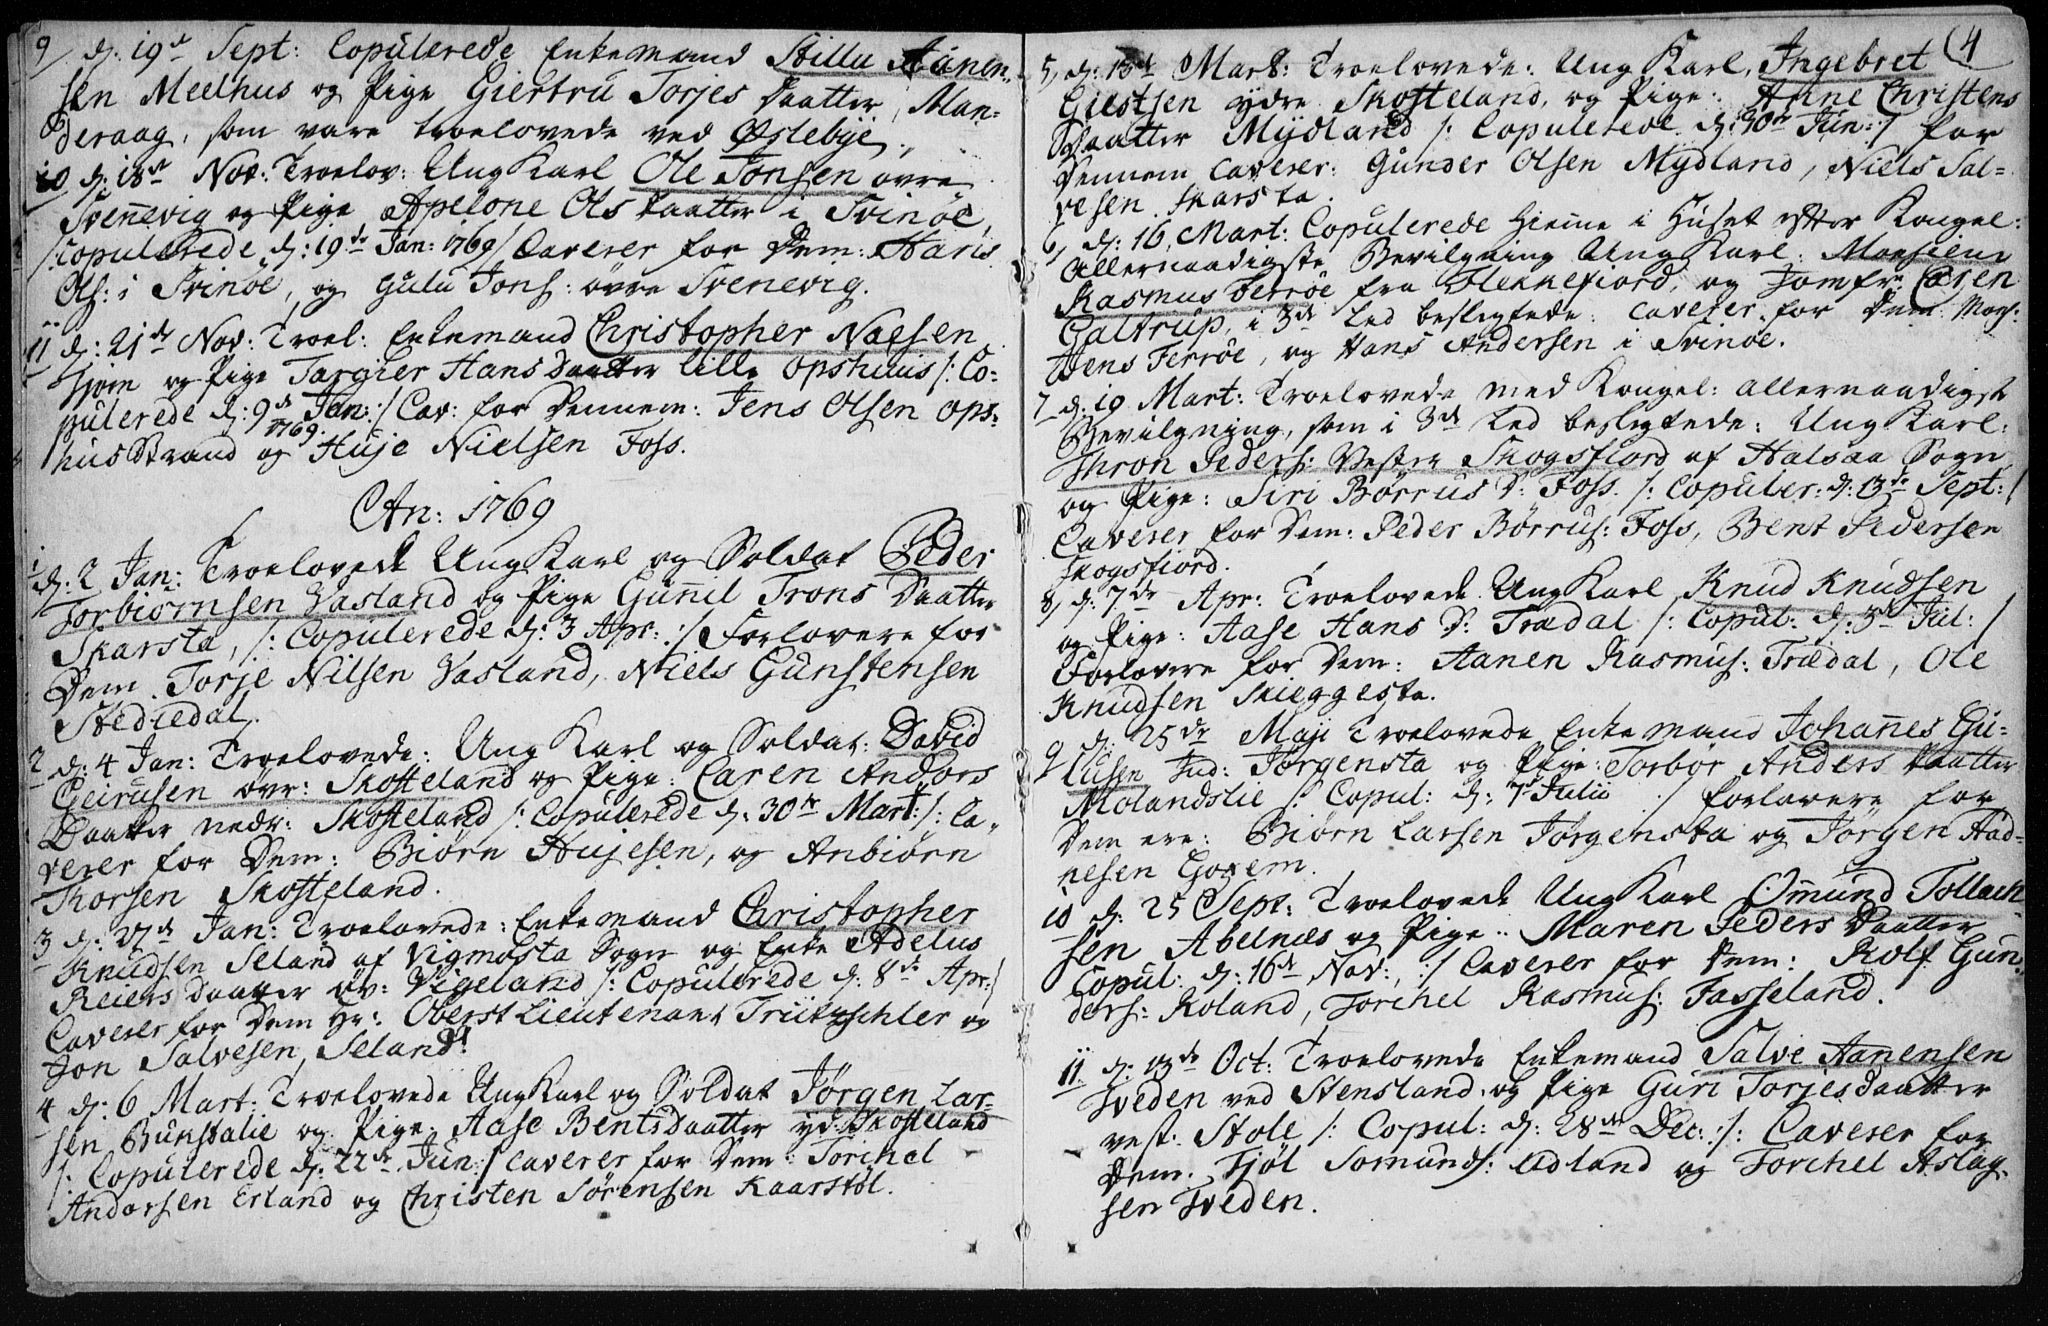 9 d: 19de Sept: Copulerede Enkemand Stillu Aanen-
sen Meelhus og Pige Giertru Torjes Daatter, Man-
deraag, som vare troelovede ved Øslebye.
10 d: 18de Nov: Troelov: Ung Karl Ole Jonsen øvre
Svennevig og Pige Apelone Ols Daatter i Svinøe,
/:Copulerede d: 19de Jan: 1769/ Caverer for Dem: Hans
Ols: i Svinøe, og Gulu Jons: øvre Svenevig.
11 d: 21de Nov: Troel: Enkemand Christopher Noesen
Hiem og Pige Targier Hans Daatter lille Opshuus /: Co-
pulerede d: 9de Jan: :/ Cav: for Dennem: Jens Olsen Ops-
1769.
hus Strand og Huje Nielsen Foss.
An: 1769
1 d: 2 Jan: Troelovede Ung Karl og Soldat Peder
Torbiørnsen Vasland og Pige Gunnil Trons Daatter
Skarsta, /: Copulerede d: 3 Apr: :/ Forlovere for
Dem Torje Nilsen Vasland, Niels Gunstensen
Stediedal.
2 d: 4 Jan: Troelovede: Ung Karl og Soldat: David
Geirusen øvr: Skofteland og Pige: Caren Andors
Daatter nedr: Skofteland /: Copulerede d: 30te Mart: /: Ca-
verer for Dem: Biørn Hujesen, og Anbiørn
Thorsen Skofteland.
3 d: 27de Jan: Troelovede: Enkemand Christopher
Knudsen Seland af Vigmosta Sogn og Enke Adelus
Reiers Daatter øv: Vigeland /: Copulerede d: 8de Apr:/
Caverer for Dem Hr: Oberst Lieutenant Trützschler og
Jon Salvesen Seland.
4 d: 6 Mart: Troelovede Ung Karl og Soldat Jørgen Lar-
sen Bunstalie og Pige: Aase Bents Daatter yd: Skofteland
/: Copulerede d: 22de Jun:/ Caverer for Dem: Torchel
Andorsen Erland og Christen Sørensen Kaarstøl.
(4
5, d: 13de Mart: Troelovede: Ung Karl, Ingebret
Giestsen ydre Skofteland, og Pige: Anne Christens
Daatter Mydland /: Copulerede d: 30te Jun:/ for
Dennem Caverer: Gunder Olsen Mydland, Niels Sal-
vesen Skarsta.
6, d: 16 Mart: Copulerede Hiemme i Huset efter Kongel:
Allernaadigste Bevilgning Ung Karl: Monsieur
Rasmus Ferrøe fra Flekkefiord, og Jomfr: Caren
Galtrup, i 3de Led beslegtede: Caverer for Dem: Mons:
Jens Ferrøe, og Hans Andersen i Svinøe.
7 d: 19 Mart: Troelovede med Kongel: allernaadigst
Bevilgning, som i 3de Led beslegtede: Ung Karl:
Thron Peders: Vestre Skogsfiord af Halsaa Sogn
og Pige: Siri Børrus D: Foss. /: Copuler: d: 13de Sept: /
Caverer for Dem: Peder Børrus: Foss, Bent Pedersen
Skogsfiord.
8, d: 7de Apr: Troelovede Ung Karl Knud Knudsen
og Pige: Aase Hans D: Trædal /: Copul: d: 3de Jul: /
Forlovere for Dem: Aanen Rasmus: Trædal, Ole
Knudsen Skieggesta.
9 d: 25de Maji Troelovede Enkemand Johannes Gu-
lusen Ind: Jørgensta og Pige: Torbør Anders Daatter
Molandslie /: Copul: d: 7de Julii :/ forlovere for
Dem ere: Biørn Larsen Jørgensta og Jørgen Aad-
nesen
10 d: 25 Sept: Troelovede Ung Karl Ommund Tollach-
sen Abelnæs og Pige: Maren Peders Daatter
Copul: d: 16de Nov: :/ Caverer for Dem: Rolf Gun-
ders: Roland, Torchel Rasmus: Fasseland.
11 d: 13de Oct: Troelovede Enkemand Salve Aanensen
Sveden ved Stensland, og Pige Guri Torjes Daatter
vest: Stole /: Copul: d: 28de Dec: :/: Caverer for
Dem: Tjøl Somunds: Udland og Torchel Aslag-
sen Sveden.